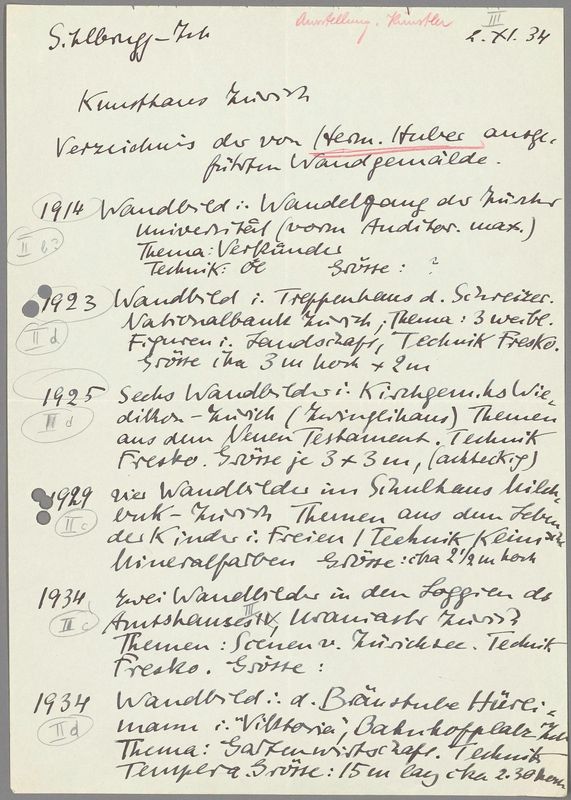 Ausstellung. Künstler
III
Sihlbrugg-Zch
2. XI. 34
Kunsthaus Zürich
Verzeichnis der von Herm. Huber ausge-
führten Wandgemälde.
1914 Wandbild i. Wandelgang der Zürcher
Universität (vorm Auditor. max.)
II b?
Thema: Verkünder
Technik: Öl Grösse: ?
1923 Wandbild i. Treppenhaus d. Schweizer.
Nationalbank Zürich, Thema: 3 weibl.
II d
Figuren i. Landschaft, Technik Fresko.
Grösse cika 3 m hoch x 2 m
1925 Sechs Wandbilder i. Kirchgem.hs Wie-
dikon-Zürich (Zwinglihaus) Themen
II d
aus dem Neuen Testament. Technik
Fresko. Grösse je 3 x 3 m, (achteckig)
1929 vier Wandbilder im Schulhaus Milch-
buck-Zürich Themen aus dem Leben
II c
der Kinder i. Freien / Technik Keims
Mineralfarben Grösse: cika 2 1/2 m hoch
1934 zwei Wandbilder in den Loggien des
III
Amtshauses IV, Uraniastr Zürich
II c
Themen: Scenen v. Zürichsee. Technik
Fresko. Grösse:
1934 Wandbild i. d. Bräustube Hürli-
mann i. "Viktoria", Bahnhofplatz Zch
II d
Thema: Gartenwirtschaft. Technik
Tempera Grösse: 15 m lang cika 2.30 hoch